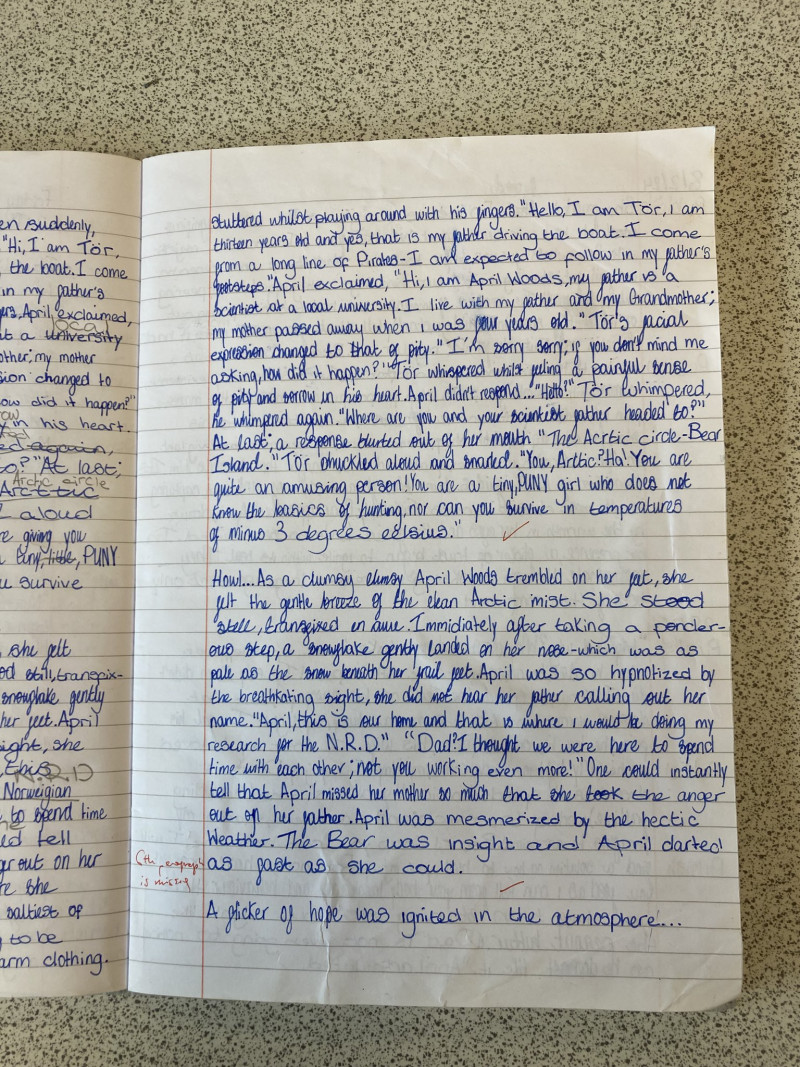 en suddenly,
"Hi, I am Tör,
the boat. I come
in my father's
ers, April exclaimed,
local
at a university
other; my mother
sion changed to
ow did it happen?"
in his heart.
ed again,
to?" At last;
Arctic circle
Arcttic
I aloud
re giving you
tiny, little, PUNY
u survive
she felt
od still, transfix-
snowflake gently
her feet. April
ight, she
this
N.R.D
Norweigian
to spend time
ed tell
ger out on her
re she
saltiest of
to be
arm clothing.
stuttered whilst playing around with his fingers. "Hello, I am Tör, I am
thirteen years old and yes, that is my father driving the boat. I come
from a long line of Pirates-I am expected to follow in my father's
footsteps." April exclaimed, "Hi, I am April Woods, my father is a
scientist at a local university. I live with my father and my Grandmother;
my mother passed away when I was four years old." Tör's facial
expression changed to that of pity. "I'm sorry sorry; if you don't mind me
asking, how did it happen?" Tör whispered whilst feeling a painful sense
of pity and sorrow in his heart. April didn't respond... "Hello?" Tör whimpered,
he whimpered again. "Where are you and your scientist father headed to?"
At last; a response blurted out of her mouth "The Acrtic circle-Bear
Island." Tör chuckled aloud and snarled. "You, Arttic? Ha! You are
quite an amusing person! You are a tiny, PUNY girl who does not
know the basics of hunting, nor can you survive in temperatures
of minus 3 degrees celsius."
Howl... As a clumsy clumsy April Woods trembled on her feet, she
felt the gentle breeze of the clean Arctic mist. She stood
still, transfixed in awe. Immidiately after taking a ponder-
ous step, a snowflake gently landed on her nose-which was as
pale as the snow beneath her frail feet. April was so hypnotized by
the breathkating sight, she did not hear her father calling out her
name. "April, this is our home and that is where I would be doing my
research for the N.R.D." "Dad? I thought we were here to spend
time with each other; not you working even more!" One could instantly
tell that April missed her mother so much that she took the anger
out of her father. April was mesmerized by the hectic
Weather. The Bear was insight and April darted
as fast as she could.
paragraph
is missing
A flicker of hope was ignited in the atmosphere...